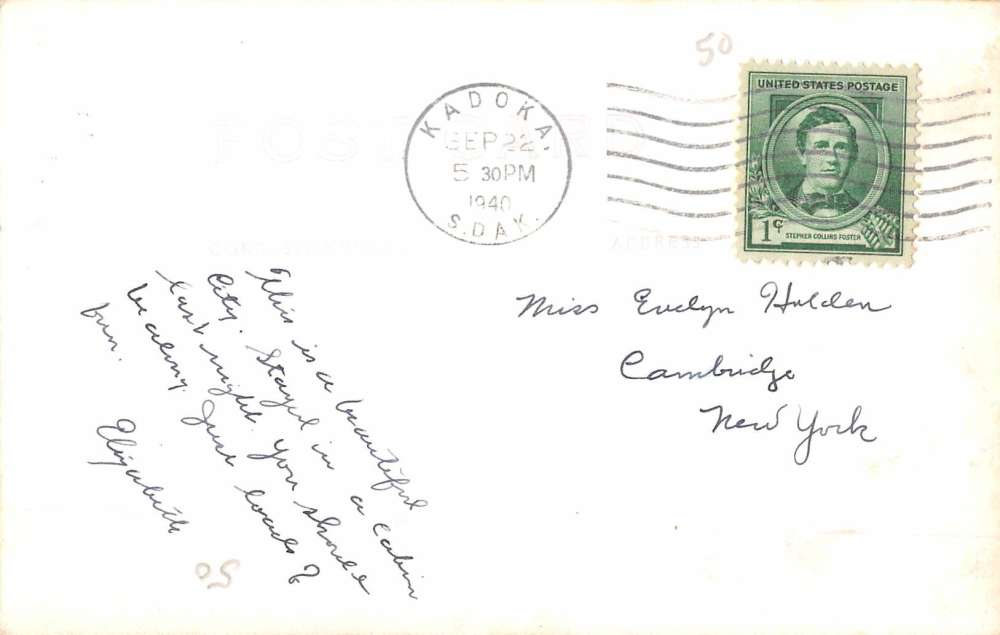 50
POST CARD
CORRESPONDENCE ADDRESS
KADOKA.
SEP 22
5 30PM
1940
S.DAK.
UNITED STATES POSTAGE
1¢
STEPHEN COLLINS FOSTER
This is a beautiful
City. Stayed in a cabin
last night. You should
be along. Just loads of
fun.
Elizabeth
Miss Evelyn Holden
Cambridge
New York
50